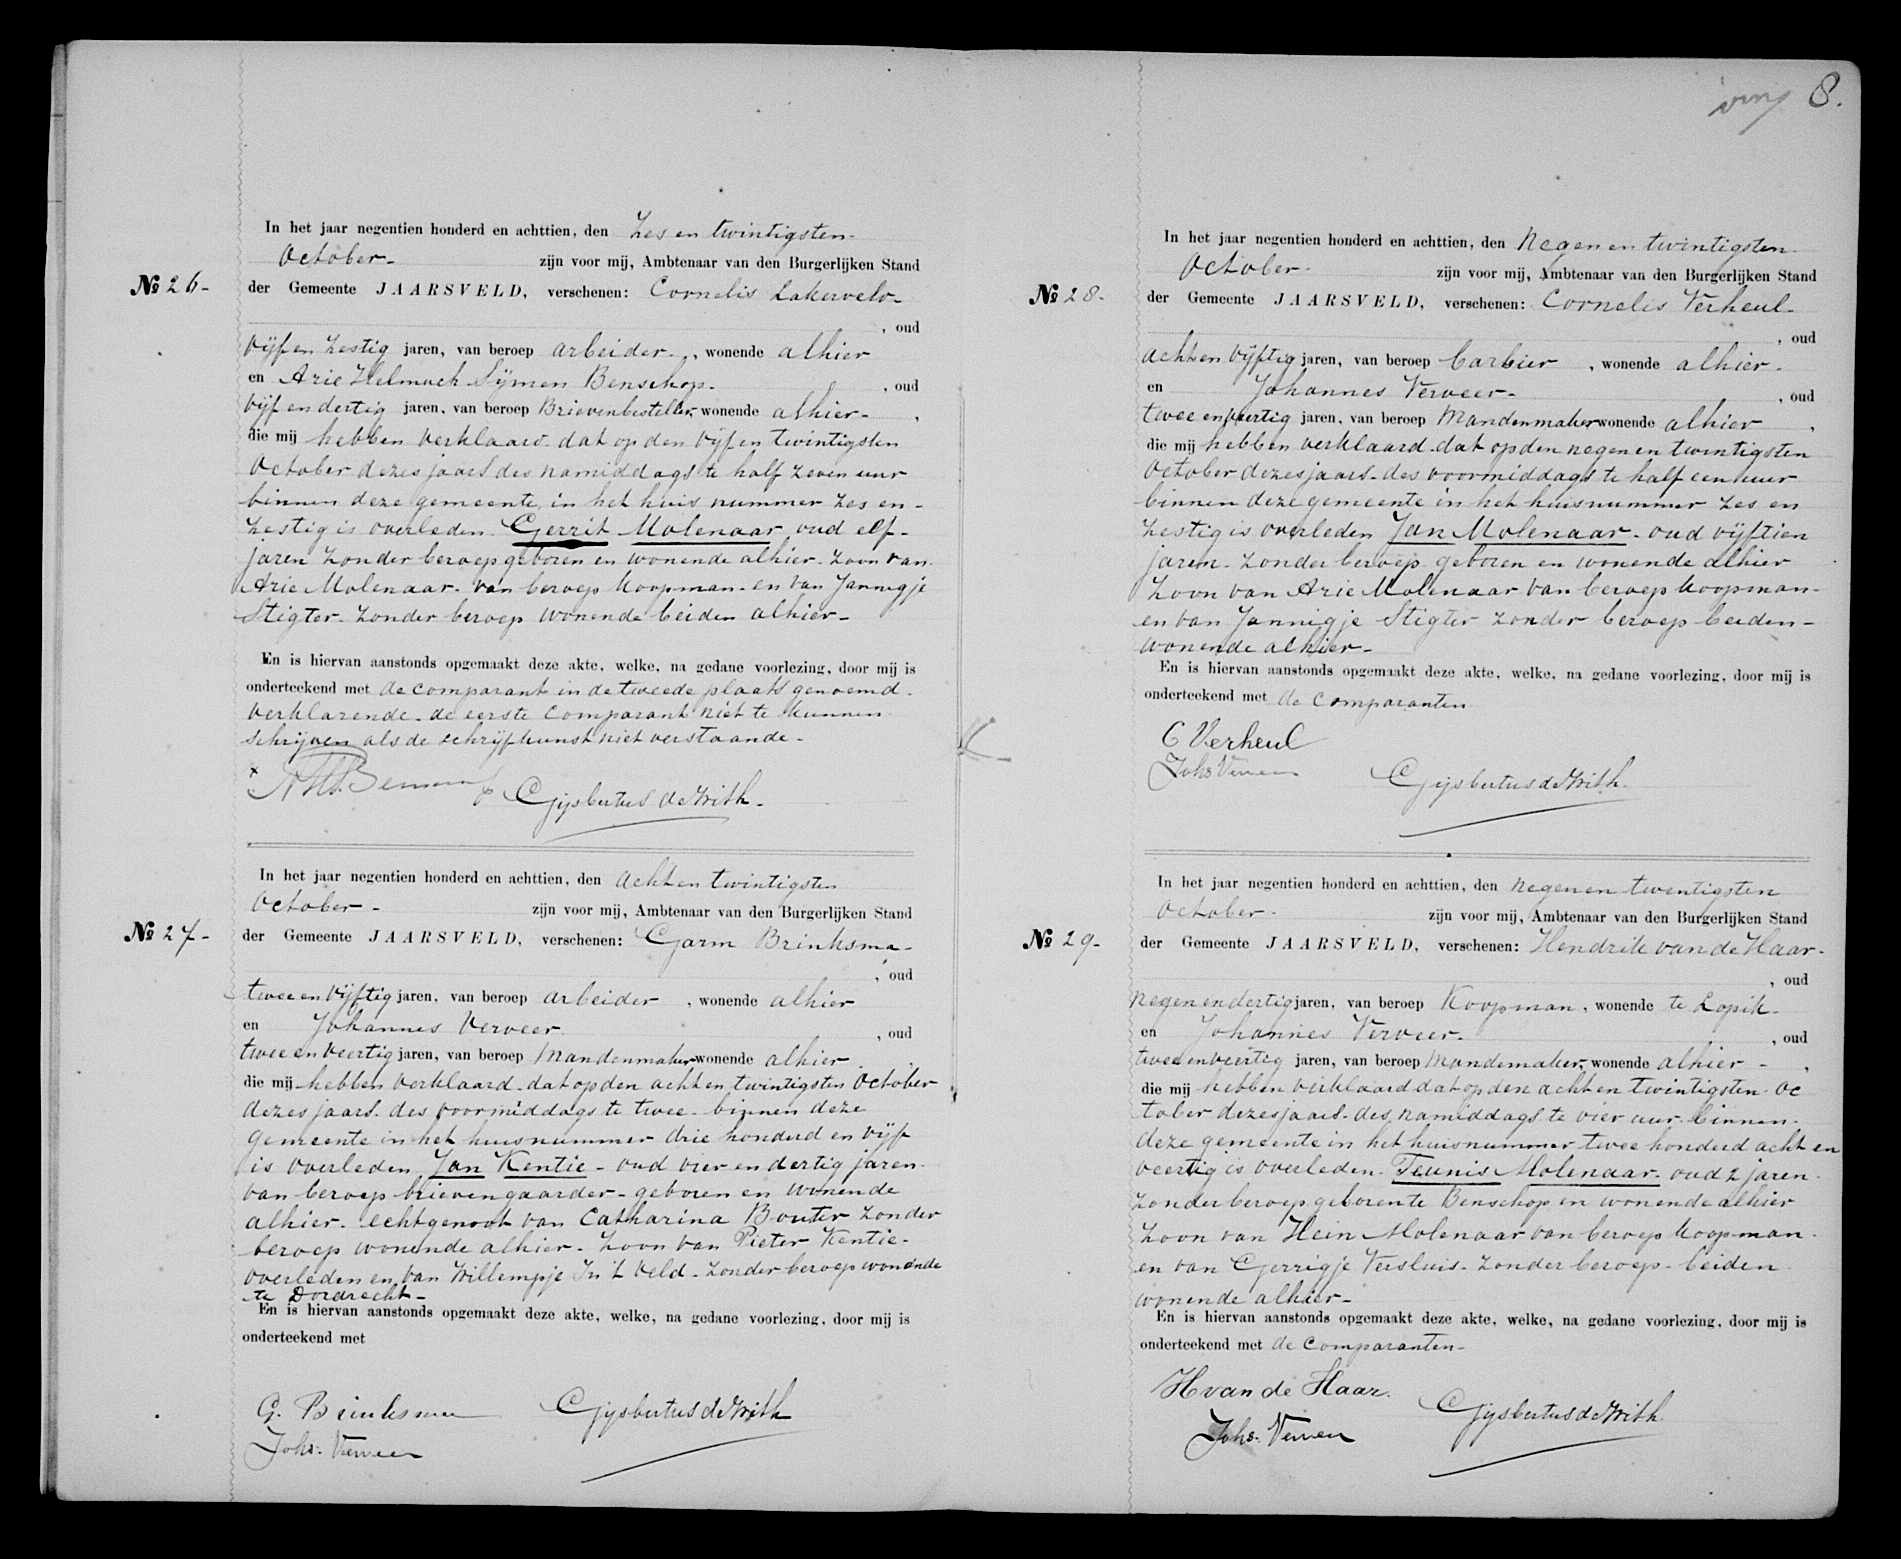 8.
In het jaar negentien honderd en achttien, den Zes en twintigsten-
October- zijn voor mij, Ambtenaar van den Burgerlijken Stand
№ 26- der Gemeente JAARSVELD, verschenen: Cornelis Lakerveld-
, oud
vijf en Zestig jaren, van beroep arbeider-, wonende alhier
en Arie Helmach Sijmen Benschop- , oud
vijf en dertig jaren, van beroep Brievenbesteller, wonende alhier- ,
die mij hebben verklaard dat op den vijf en twintigsten
October dezes jaars des namiddags te half zeven uur
binnen deze gemeente in het huis nummer zes en-
Zestig is overleden Gerrit Molenaar oud elf-
jaren zonder beroep geboren en wonende alhier- zoon van
Arie Molenaar- van beroep koopman- en van Jannigje
Stigter- zonder beroep wonende beiden alhier-
En is hiervan aanstonds opgemaakt deze akte, welke, na gedane voorlezing, door mij is
onderteekend met de comparant in de tweede plaats genoemd-
verklarende- de eerste comparant niet te kunnen
schrijven als de schrijfkunst niet verstaande-
Gijsbertus de With-
In het jaar negentien honderd en achttien, den acht en twintigsten
October- zijn voor mij, Ambtenaar van den Burgerlijken Stand
№ 27- der Gemeente JAARSVELD, verschenen: Garm Brinksma-
, oud
twee en vijftig jaren, van beroep arbeider , wonende alhier
en Johannes Verveer , oud
twee en veertig jaren, van beroep Mandenmaker wonende alhier
die mij hebben verklaard- dat op den acht en twintigsten October
dezes jaars- des voormiddags te twee- binnen deze
gemeente in het huisnummer drie honderd en vijf
is overleden Jan Kentie- oud vier en dertig jaren-
van beroep brievengaarder- geboren en wonende
alhier- echtgenoot van Catharina Bouter zonder
beroep wonende alhier- Zoon van Pieter Kentie-
overleden en van Willempje In 't Veld- zonder beroep wonende
te Dordrecht-
En is hiervan aanstonds opgemaakt deze akte, welke, na gedane voorlezing, door mij is
onderteekend met
G. Brinksma Gijsbertus de With
Johs. Verveer
In het jaar negentien honderd en achttien, den Negen en twintigsten
October- zijn voor mij, Ambtenaar van den Burgerlijken Stand
№ 28- der Gemeente JAARSVELD, verschenen: Cornelis Verheul-
, oud
acht en vijftig jaren, van beroep barbier , wonende alhier-
en Johannes Verveer- , oud
twee en veertig jaren, van beroep Mandenmaker wonende alhier ,
die mij hebben verklaard- dat op den negen en twintigsten
October dezes jaars- des voormiddags te half een uur
binnen deze gemeente in het huisnummer zes en
Zestig is overleden Jan Molenaar- oud vijftien
jaren- zonder beroep- geboren en wonende alhier
Zoon van Arie Molenaar van beroep koopman-
en van Jannigje Stigter zonder beroep beiden-
wonende alhier-
En is hiervan aanstonds opgemaakt deze akte, welke, na gedane voorlezing, door mij is
onderteekend met de comparanten
C Verheul
Johs Verveer Gijsbertus de With-
In het jaar negentien honderd en achttien, den negen en twintigsten
October- zijn voor mij, Ambtenaar van den Burgerlijken Stand
№ 29- der Gemeente JAARSVELD, verschenen: Hendrik van de Haar-
, oud
negen en dertig jaren, van beroep Koopman, wonende te Lopik-
en Johannes Verveer- , oud
twee en veertig jaren, van beroep Mandemaker, wonende alhier- ,
die mij hebben verklaard dat op den acht en twintigsten- Oc
tober dezes jaars- des namiddags te vier uur- binnen-
deze gemeente in het huisnummer twee honderd acht en
veertig is overleden- Teunis Molenaar- oud 2 jaren-
zonder beroep geboren te Benschop en wonende alhier
Zoon van Hein Molenaar van beroep koopman-
en van Gerrigje Versluis- zonder beroep- beiden
wonende alhier-
En is hiervan aanstonds opgemaakt deze akte, welke, na gedane voorlezing, door mij is
onderteekend met de comparanten-
H van de Haar.
Johs. Verveer Gijsbertus de With